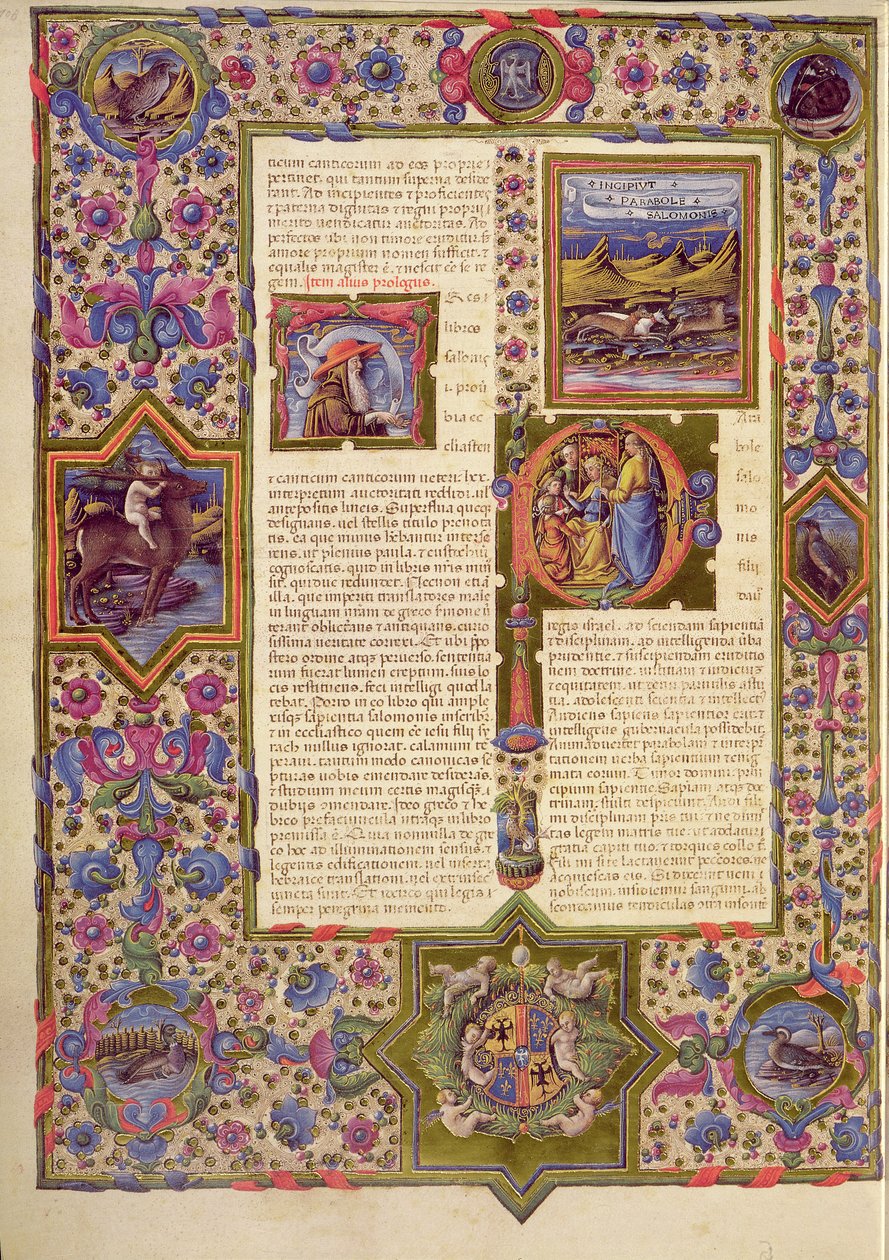 ticum canticorum ad eos proprie
pertinet, qui tantum superna deside
rant. Ad incipientes & proficientes
& paterna dignitas & regni proprii
merito uendicatur auctoritas. Ad
perfectos ubi non timore eruditur
amore proprium nomen sufficit. &
equalis magister e. & nescit
gem. Item alius prologus.
Res
libros
salomo
prou
bia ec
clesiasten
& canticum canticorum ueteri
interpretum auctoritati reddidi. uel
antepositis lineis. Superflua queq
designans. uel stellis titulo prenota
tis. ea que minus habentur interse
rens. ut plenius paula. & eustochium
cognoscatis. quid in libris
sit. quidue redundet. Necnon etia
illa. que imperiti translatores male
in linguam de greco
terant obliterans & antiquans. curio
sissima ueritate correxi. Et ubi
stero ordine atq peruerso. sententia
rum fuerat lumen ereptum. suis lo
cis restituens. feci intelligi quod la
tebat. Porro in eo libro qui a
sapientia salomonis inscribit
& in ecclesiastico quem esse iesu filii sy
rach nullus ignorat. calamum te
peraui. tantummodo canonicas sc
pturas uobis emendare desiderans.
& studium meum certis magisq
dubiis
breo prefaciuncula utraq in libro
premissa e. Quia nonnulla de
co ad illuminationem sensus &
legentis edificationem. uel inserta
hebraice translationi. uel extrinsec
iuncta sunt. Et idcirco qui legis
semper peregrini memento.
INCIPIVT
PARABOLE
SALOMONIS
Ara
bole
salo
mo
nis
filii
regis israel. ad sciendam sapientia
& disciplinam. ad intelligenda
prudentie. & suscipiendam eruditio
nem doctrine. iustitiam & iudiciu
& equitatem. ut detur paruulis astu
tia. adolescenti scientia & intellect
Audiens sapiens sapientior erit. &
intelligens gubernacula possidebit.
Animaduertet parabolam & interp
tationem uerba sapientium & enig
mata eorum. Timor domini prin
cipium sapientie. Sapiam atq doc
trinam. stulti despiciunt. Audi fili
mi disciplinam pris tui. & ne dimi
tas legem matris tue. ut addatur
gratia capiti tuo. & torques collo t
Fili mi si te lactauerint peccatores. ne
acquiescas eis. Si dixerint ueni
nobiscum. insidiemur sanguini. ab
scondamus tendiculas